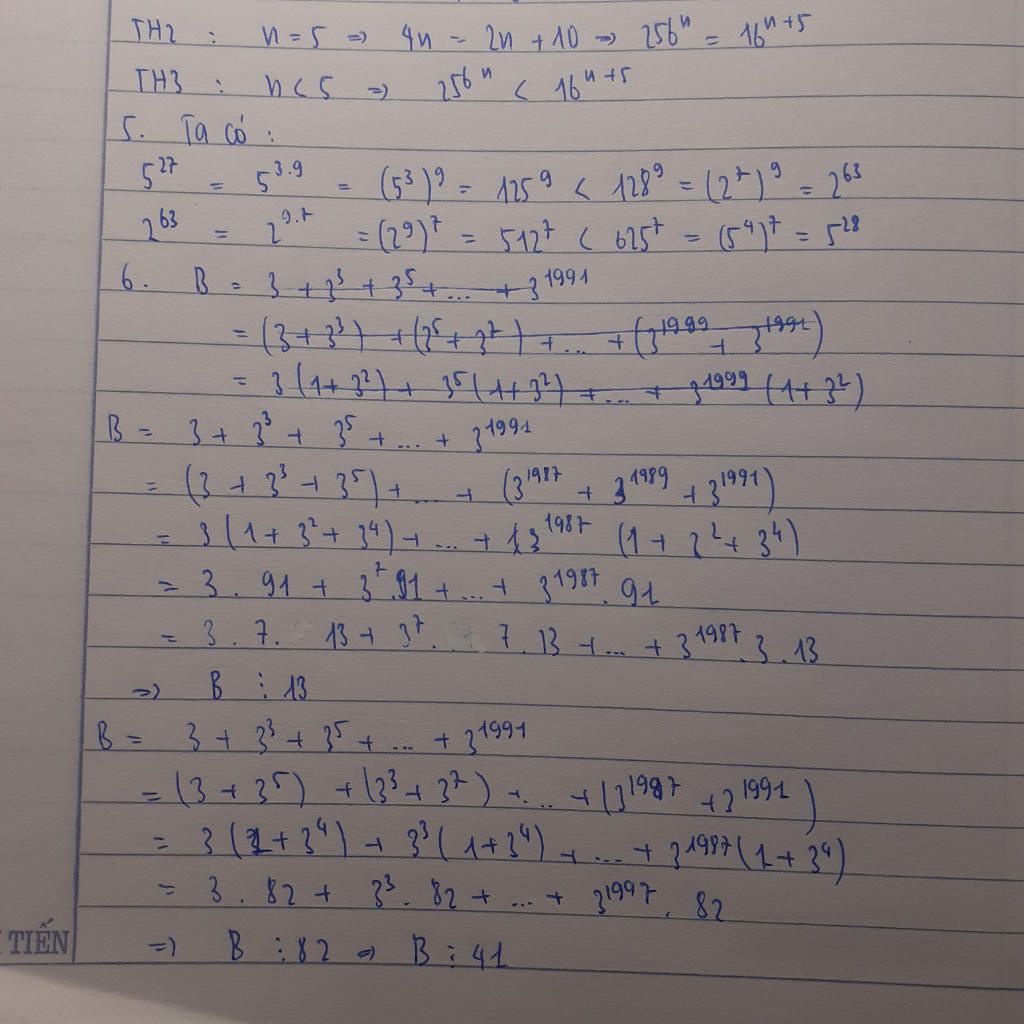 TH2 : n = 5 => 4n = 2n + 10 => 256^n = 16^{n+5}
TH3 : n < 5 => 256^n < 16^{n+5}
5. Ta có :
5^{27} = 5^{3.9} = (5^3)^9 = 125^9 < 128^9 = (2^7)^9 = 2^{63}
2^{63} = 2^{9.7} = (2^9)^7 = 512^7 < 625^7 = (5^4)^7 = 5^{28}
6. B = 3 + 3^3 + 3^5 + ... + 3^{1991}
= (3 + 3^3) + (3^5 + 3^7) + ... + (3^{1989} + 3^{1991})
= 3(1 + 3^2) + 3^5(1 + 3^2) + ... + 3^{1999}(1 + 3^2)
B = 3 + 3^3 + 3^5 + ... + 3^{1991}
= (3 + 3^3 + 3^5) + ... + (3^{1987} + 3^{1989} + 3^{1991})
= 3(1 + 3^2 + 3^4) + ... + 3^{1987} (1 + 3^2 + 3^4)
= 3 . 91 + 3^7 . 91 + ... + 3^{1987} . 91
= 3 . 7 . 13 + 3^7 . 7 . 13 + ... + 3^{1987} . 3 . 13
=> B ⋮ 13
B = 3 + 3^3 + 3^5 + ... + 3^{1991}
= (3 + 3^5) + (3^3 + 3^7) + ... + (3^{1987} + 3^{1991})
= 3(1 + 3^4) + 3^3(1 + 3^4) + ... + 3^{1987}(1 + 3^4)
= 3 . 82 + 3^3 . 82 + ... + 3^{1997} . 82
=> B ⋮ 82 => B ⋮ 41
TIẾN